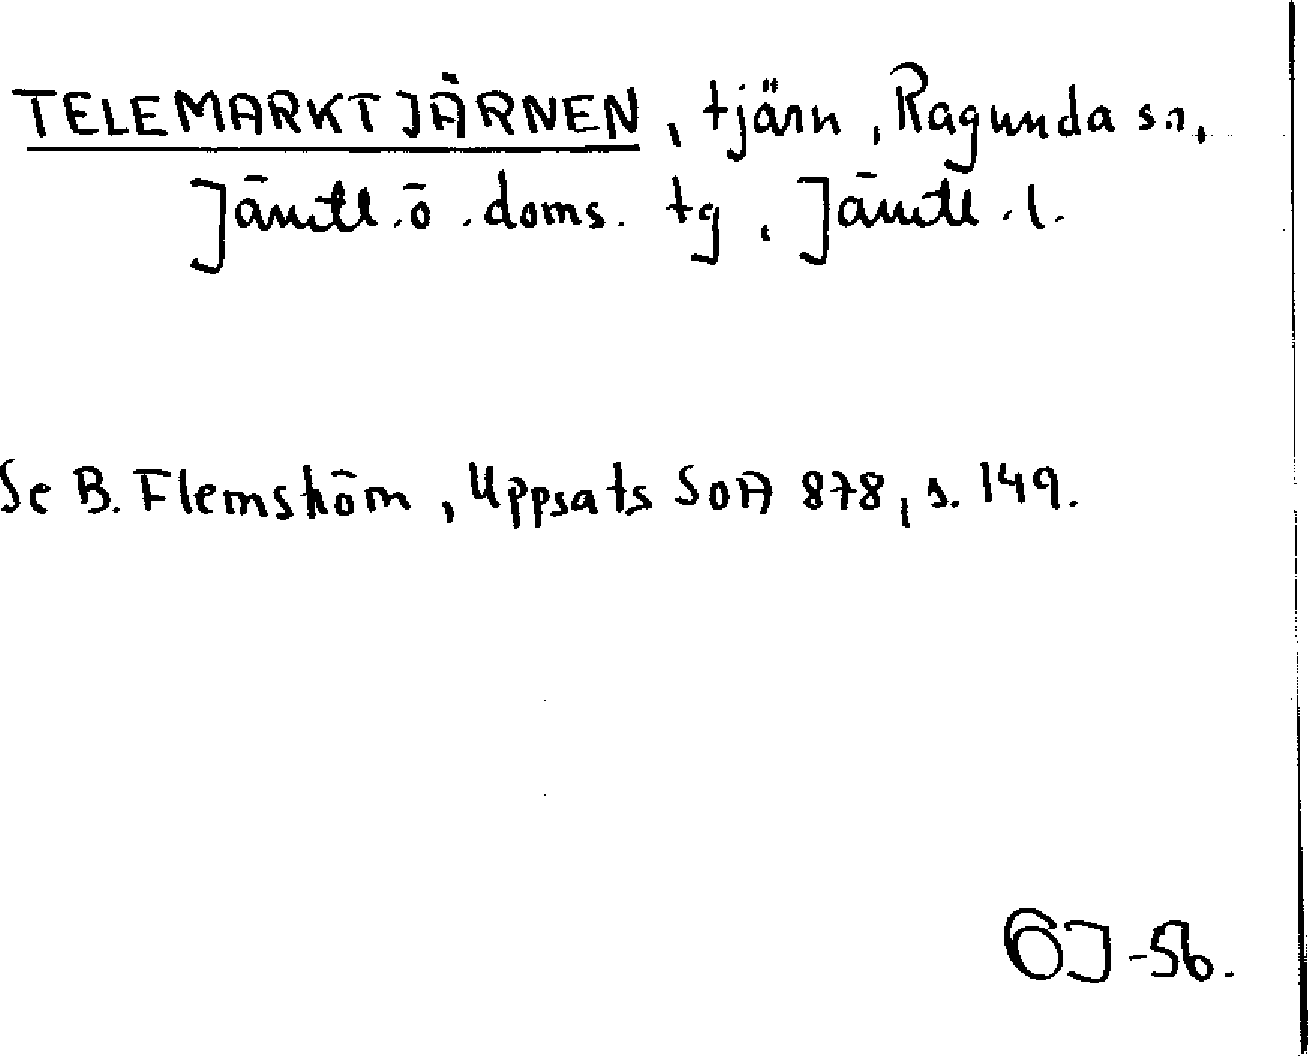 TELEMARKTJÄRNEN, tjärn, Ragunda sn,
Jämtl. ö. doms. tg, Jämtl. l.
Se B. Flemström, Uppsats SOA 878, s. 149.
GJ-56.